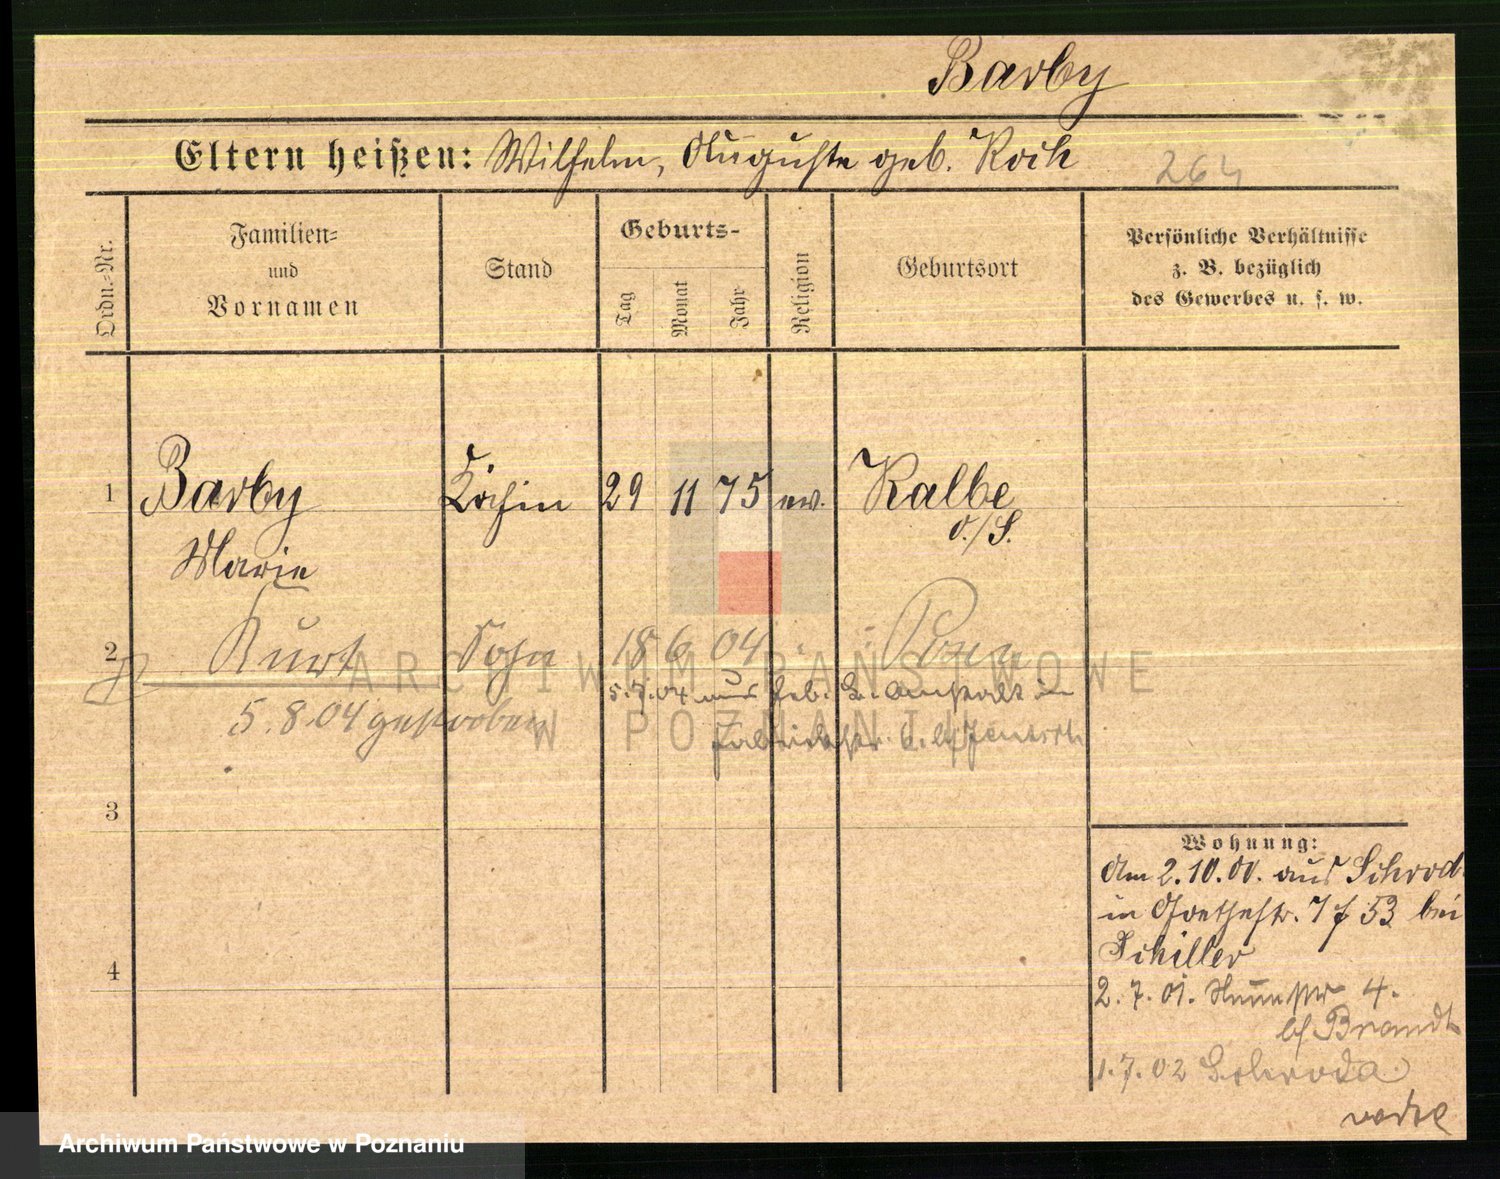 Barby
Eltern heißen: Wilhelm, Auguste geb. Koch
264
Ordn.-Nr.
Familien-
und
Vornamen
Stand
Geburts-
Tag
Monat
Jahr
Religion
Geburtsort
Persönliche Verhältnisse
z. B. bezüglich
des Gewerbes u. s. w.
1 Barby Köchin 29 11 75 ev. Kalbe
a./S.
Marie
2 Kurt Sohn 18 6 04 Posen
ARCHIWUM PAŃSTWOWE
5.7.04 aus Geb. L. Anstalt in
5.8.04 gestorben
W POZNANIU
3
4
Wohnung:
Am 2.10.00. aus Schrod
in Goethestr. 7 f 53 bei
Schiller
2.7.01. 4.
b/ Brandt
1.7.02 Schroda
Archiwum Państwowe w Poznaniu